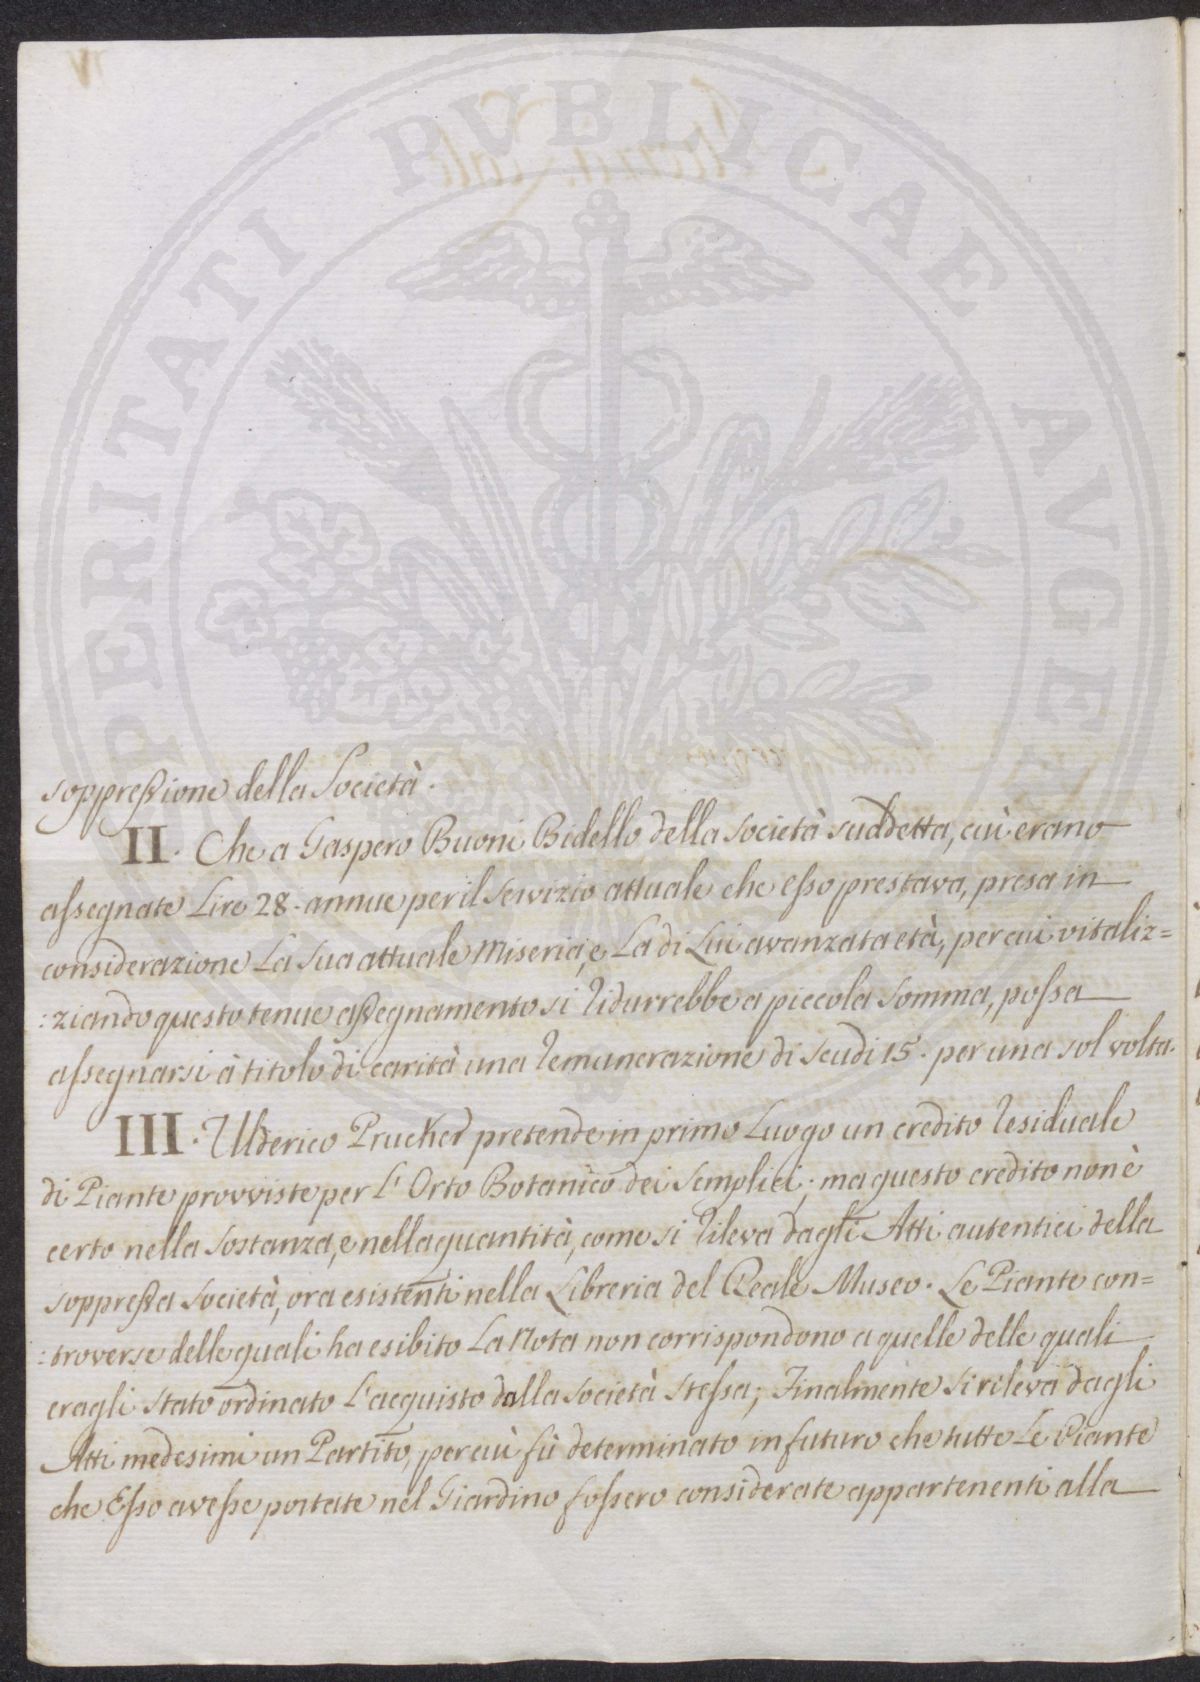 PERITATI PVBLICAE AVGE
soppressione della Società.
II. Che a Gaspero Buoni Bidello della Società suddetta, cui erano
assegnate Lire 28. annue per il servizio attuale che esso prestava, presa in
considerazione La sua attuale Miseria, e La di Lui avanzata età, per cui vitaliz=
:ziando questo tenue assegnamento si ridurrebbe a piccola somma, possa
assegnarsi à titolo di carità una remunerazione di scudi 15. per una sol volta.
III. Ulderico Prucker pretende in primo Luogo un credito residuale
di Piante provviste per L'Orto Botanico dei semplici; ma questo credito non è
certo nella sostanza, e nella quantità, come si rileva dagli Atti autentici della
soppressa Società, ora esistenti nella Libreria del Reale Museo. Le Piante con=
:troverse delle quali ha esibito La Nota non corrispondono a quelle delle quali
eragli stato ordinato L'acquisto dalla società stessa; Finalmente si rileva dagli
Atti medesimi un Partito, per cui fù determinato in futuro che tutte Le Piante
che Esso avesse portate nel Giardino fossero considerate appartenenti alla